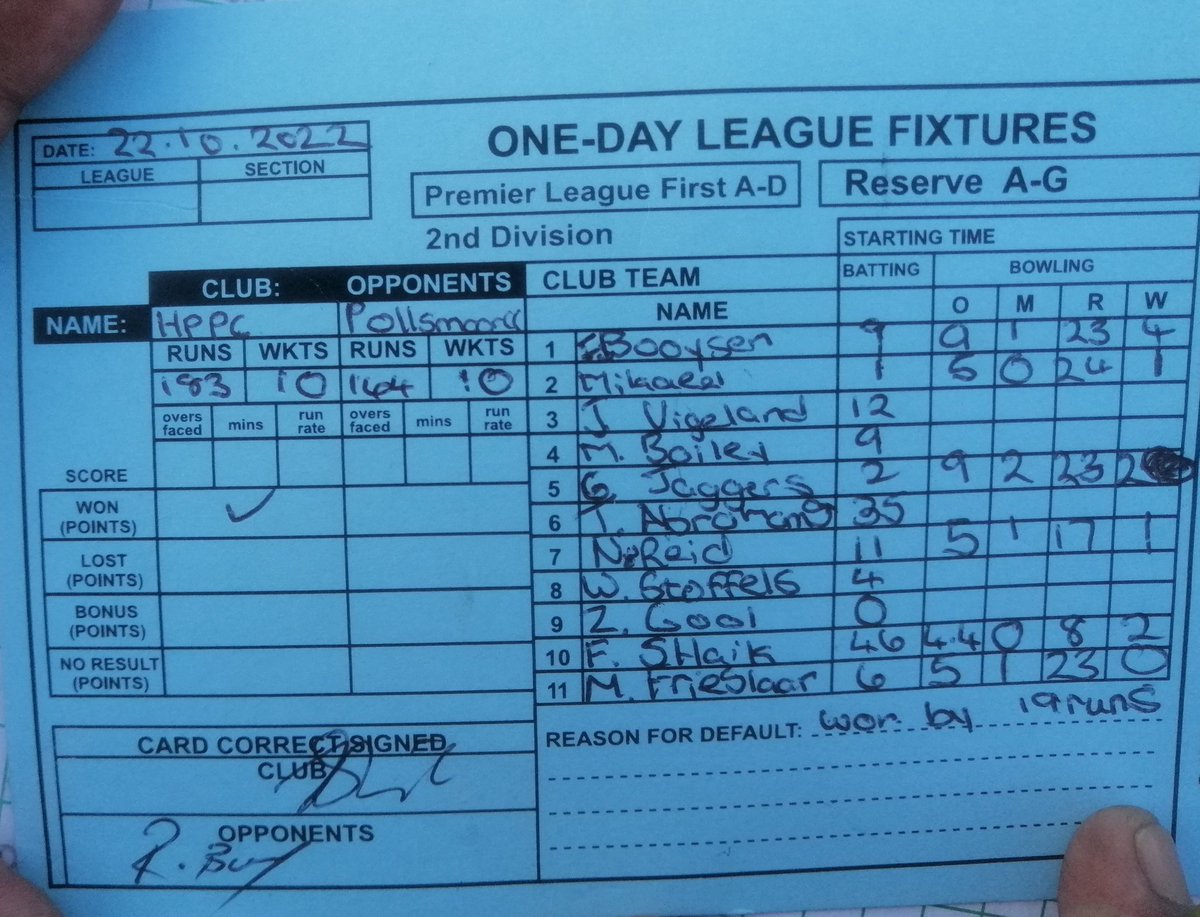 DATE: 22.10.2022
LEAGUE SECTION
ONE-DAY LEAGUE FIXTURES
Premier League First A-D
Reserve A-G
2nd Division
STARTING TIME
CLUB: OPPONENTS
NAME: HPPC Pollsmoor
RUNS WKTS RUNS WKTS
183 10 164 10
overs faced mins run rate overs faced mins run rate
SCORE
WON (POINTS) ✓
LOST (POINTS)
BONUS (POINTS)
NO RESULT (POINTS)
CARD CORRECT SIGNED
CLUB
OPPONENTS
CLUB TEAM BATTING BOWLING
NAME O M R W
1 Booysen 9 9 1 23 4
2 1 5 0 24 1
3 J. Vigeland 12
4 M. Bailey 9
5 G. Jaggers 2 9 2 23 2
6 T. Abrahams 35
7 N. Reid 11 5 1 17 1
8 W. Stoffels 4
9 Z. Gool 0
10 F. SHaik 46 4.4 0 8 2
11 M. Frieslaar 6 5 1 23 0
REASON FOR DEFAULT: won by 19 runs